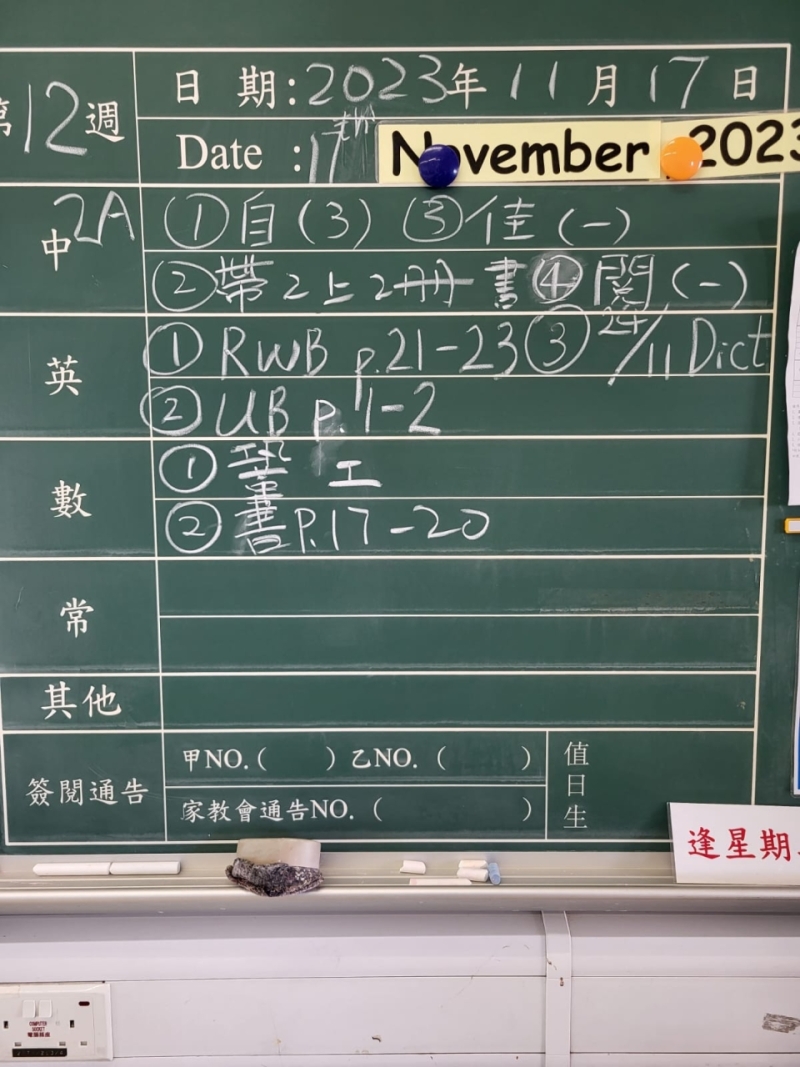 第12週
日 期:2023年11月17日
Date :17th November 2023
中 2A
①自(3) ③佳(一)
②帶2上2冊書④閱(一)
英
①RWB p.21-23③24/11 Dict
②UB p.1-2
數
① 工
②書P.17-20
常
其他
簽閱通告
甲NO.( )乙NO.( )
家教會通告NO.( )
值日生
逢星期
COMPUTER SOCKET
電腦插座